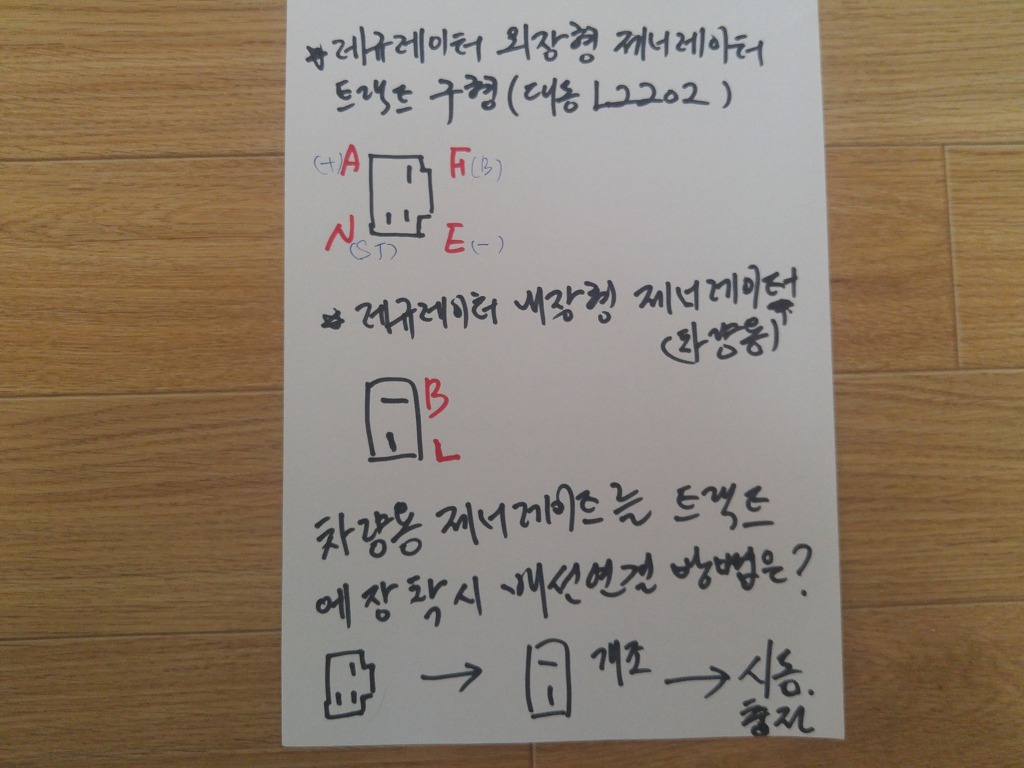 * 레규레이터 외장형 제너레이터
트랙트 구형(대동 L2202)
(+)A F(B)
N(ST) E(-)
* 레규레이터 내장형 제너레이터
(차량용)
B
L
차량용 제너레이트를 트랙트
에 장착시 배선연결 방법은?
개조 시동.
충전